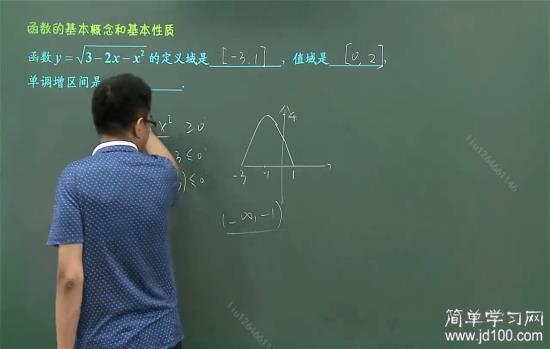 函数的基本概念和基本性质
函数 y=√3-2x-x² 的定义域是 [-3,1] ，值域是 [0,2] ，
单调增区间是 .
x² ≥0
3 ≤0
) ≤0
4
-3 -1 1
(-∞,-1)
简单学习网
www.jd100.com